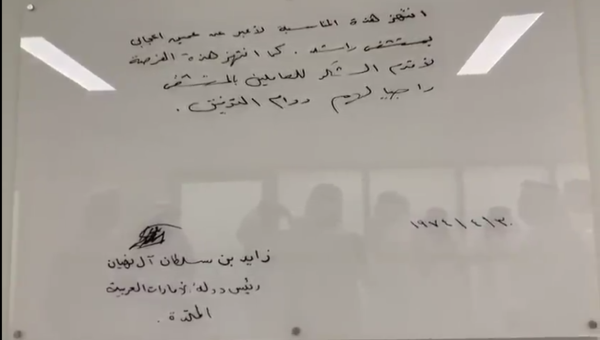 انتهز هذه المناسبة لأعبر عن عميق اعجابي
بمستشفى راشد . كما انتهز هذه الفرصة
لأقدم الشكر للعاملين بالمستشفى
راجيا لهم دوام التوفيق .
١٩٧٤/٤/٣٠
زايد بن سلطان آل نهيان
رئيس دولة الإمارات العربية
المتحدة .